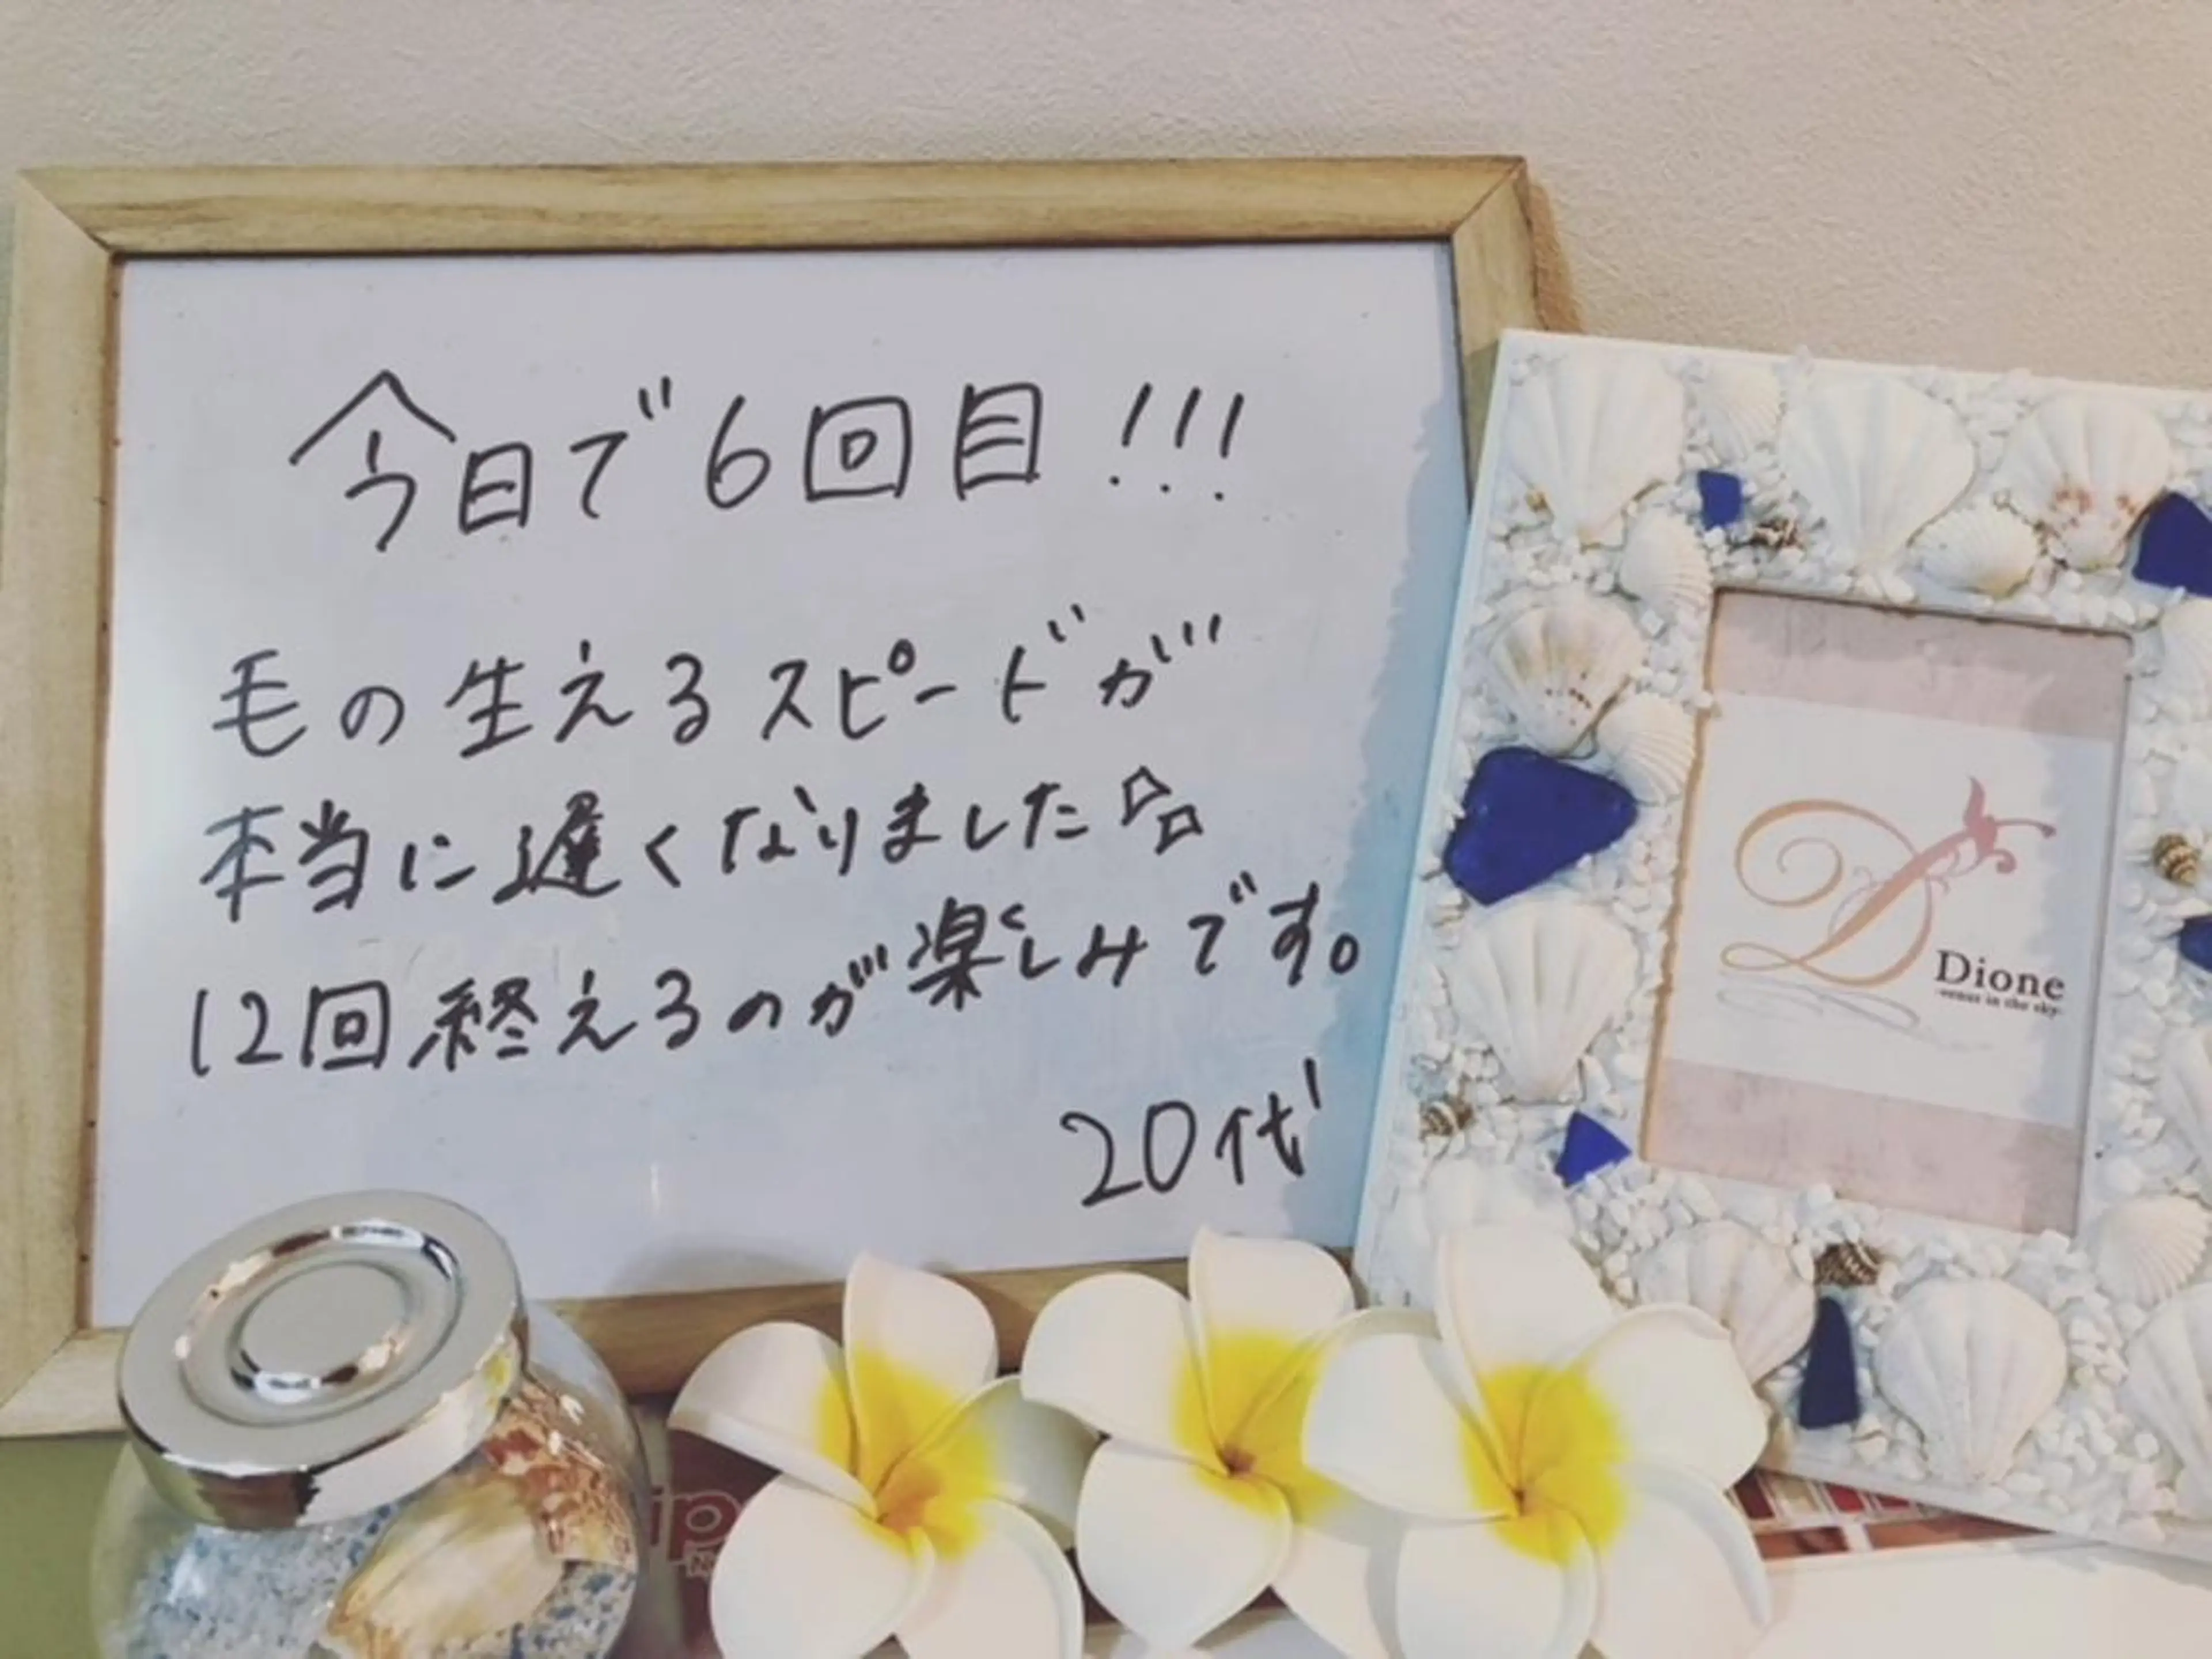 今日で6回目!!!
毛の生えるスピードが
本当に遅くなりました
12回終えるのが楽しみです。
20代
Dione
venus in the sky